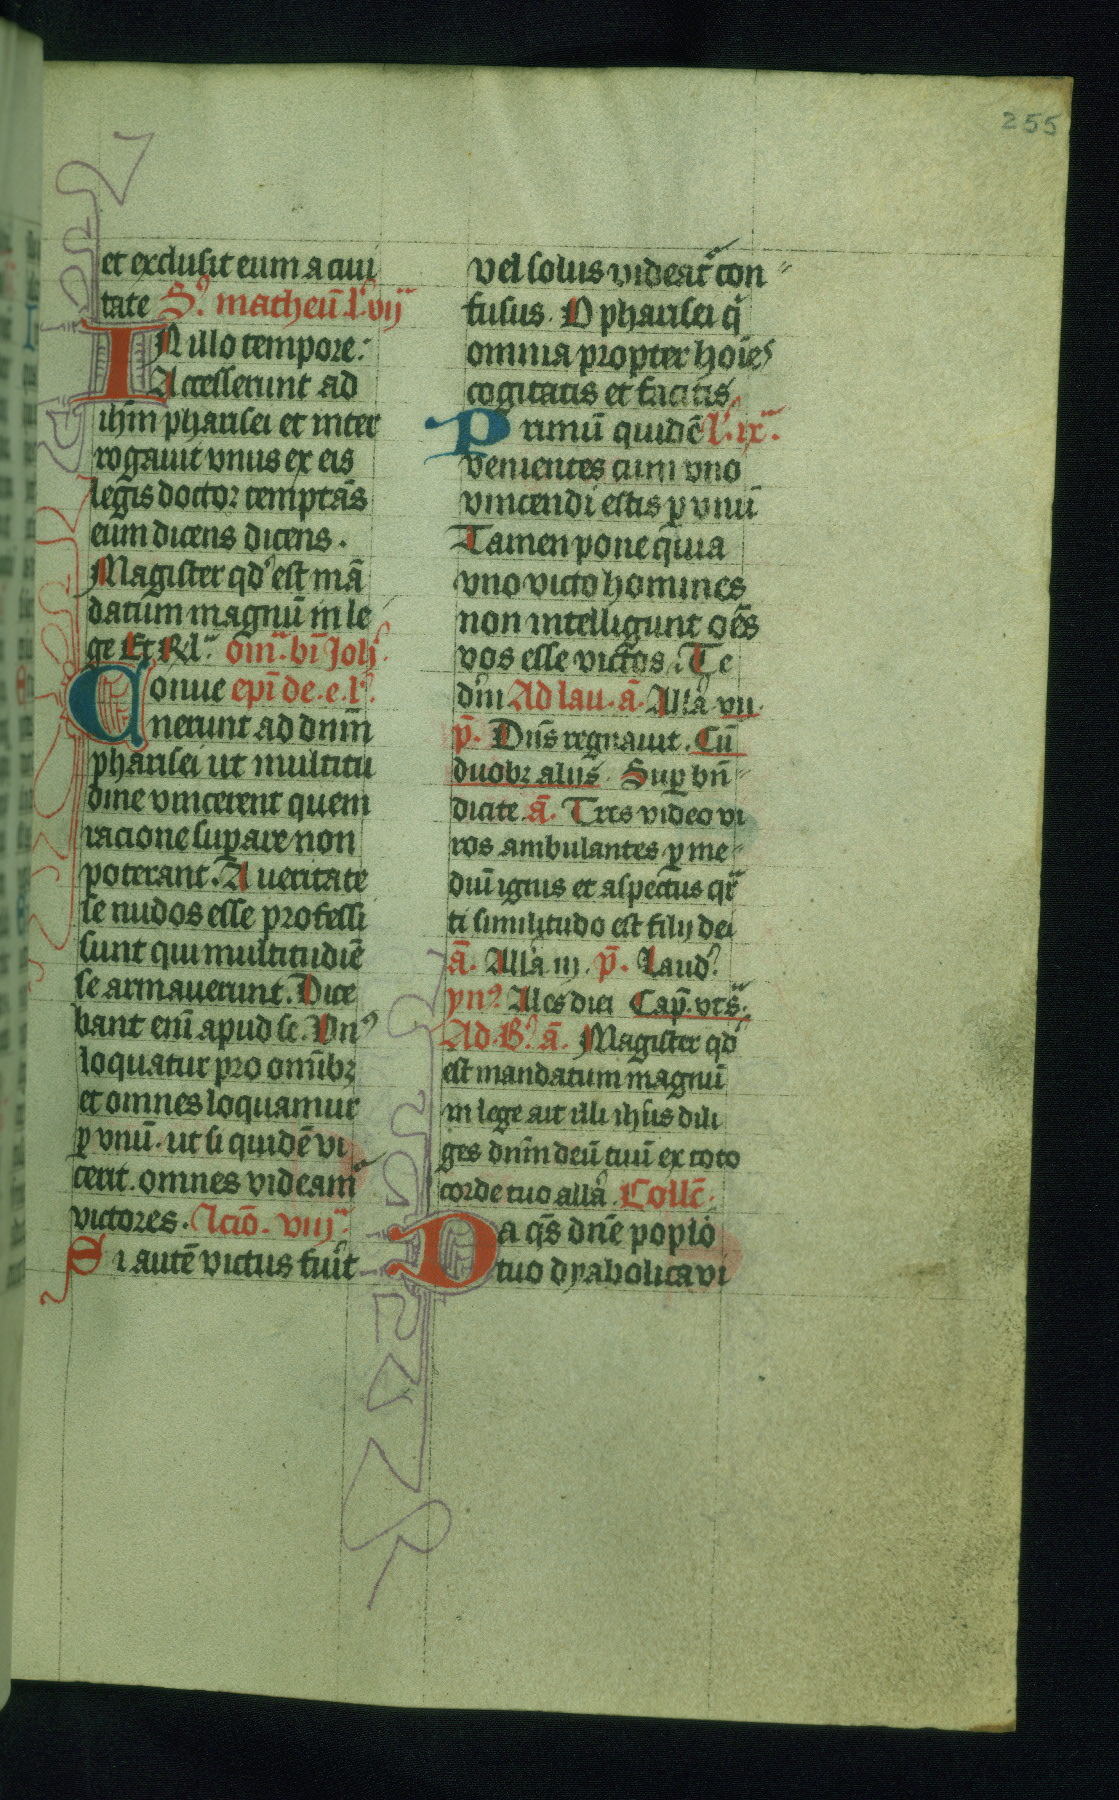 255
et exclusit eum a ciui
tate S᷒ matheū l᷒ vij
IN illo tempore:
Accesserunt ad
ihm̄ pharisei et inter
rogauit vnus ex eis
legis doctor temptās
eum dicens dicens.
Magister qd᷒ est mā
datum magnū in le
ge Et Rl᷒ om̄. bī Joh᷒.
Conue epī de. e. l᷒.
nerunt ad dnm̄
pharisei ut multitu
dine vincerent quem
racione suꝑare non
poterant. A ueritate
se nudos esse professi
sunt qui multitudiē
se armauerunt. Dice
bant enī apud se. Vn᷒
loquatur pro omībꝫ
et omnes loquamur
ꝑ vnū. ut si quidē vi
cerit. omnes videam᷑
victores. Lcīo. viij.
Si autē victus fuīt
vel solus videat᷑ con
fusus. O pharisei q̄
omnia propter hoīēs
cogitatis et facitis
Primū quidē l᷒. ix.
venientes cum vno
vincendi estis ꝑ vnū
Tamen pone quia
vno victo homines
non intelligunt oēs
vos esse victos. Te
dm̄ Ad lau. ā. Allā vii.
p̄. Dn̄s regnauit. Cū
duobꝫ alijs. Suꝑ bn̄
dicite. ā. Tres video vi
ros ambulantes ꝑ me
diū ignis et aspectus qr̄
ti similitudo est filij dei
ā. Allā iij. p̄. Laud᷒
ymꝰ. Ales diei Cap̄. vts᷒.
Ad. B᷒. ā. Magister qd᷒
est mandatum magnū
in lege ait illi ihūs dili
ges dnm̄ deū tuū ex toto
corde tuo allā. Collē.
Da qs̄ dnē poplo
tuo dyabolica vi